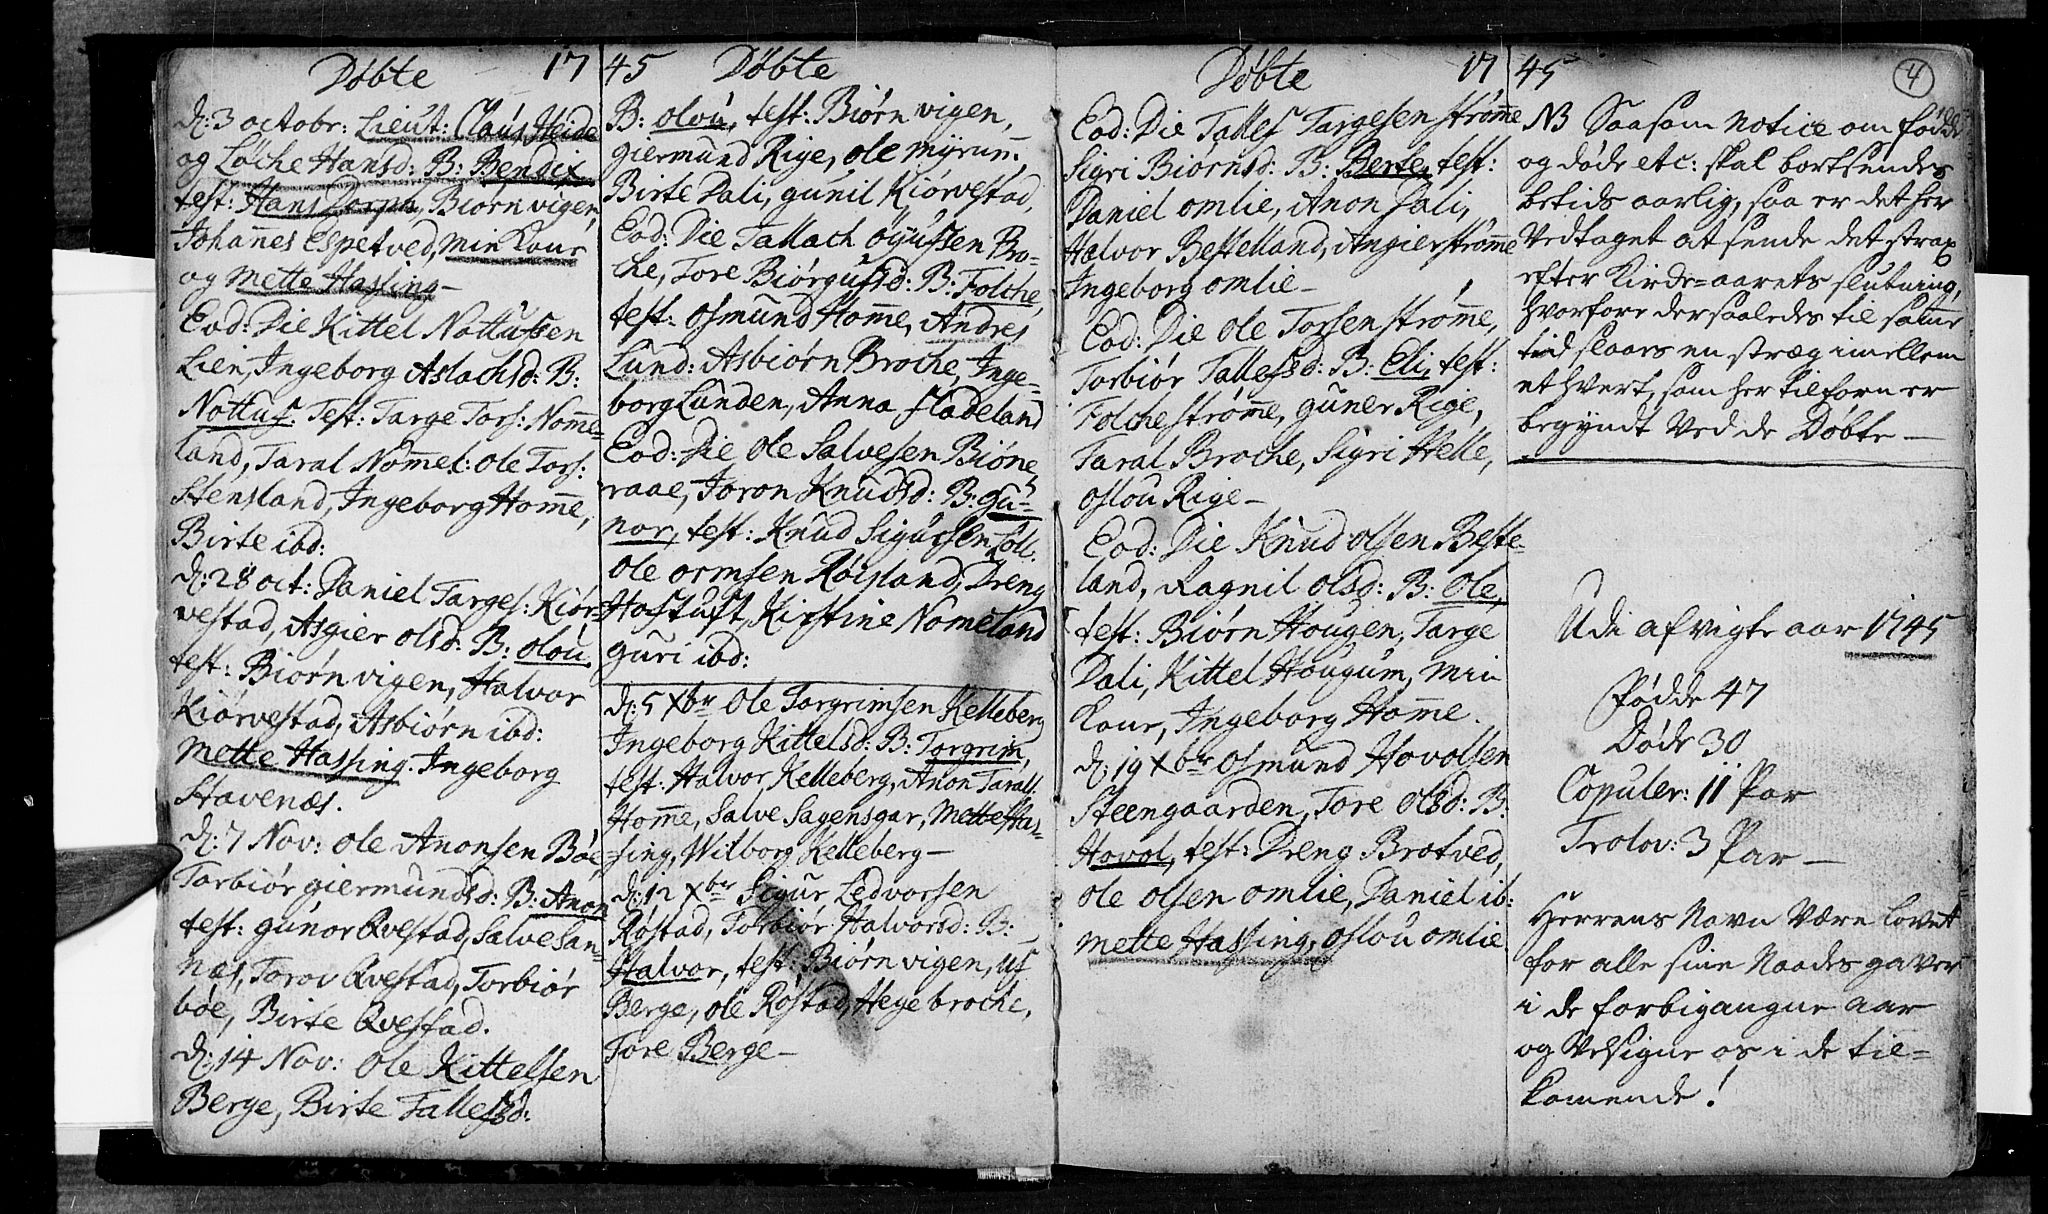 Døbte 17
d: 3 octobr: Lieut: Claus Heide
og Løche Hansd: B: Bendix
test: Hans Dorph, Biørn vigen,
Johannes Espetved, min Kone
og Mette Hassing —
Eod: Die Kittel Nottufsen
Lien, Ingeborg Aslachsd: B:
Nottuf. Test: Targe Tors: Nomme-
land, Taral Nommel: ole Tors:
Stensland, Ingeborg Homme,
Birte ibd:
d: 28 oct: Daniel Targes: Kiør-
vestad, Asgier olsd: B: olou
test: Biørn vigen, Halvor
Kiørvestad, Asbiørn ibd:
Mette Hassing. Ingeborg
Stavenæs.
d: 7 Nov: ole Anonsen Bøe,
Torbiør giermundsd: B: Anon
test: gunor Qvestad, Salve San-
næs, Torov Qvestad, Torbiør
bøe, Birte Qvestad.
d: 14 Nov: ole Kittelsen
Berge, Birte Tallefsd:
45 Døbte
B: olou, test: Biørn vigen,
giermund Rige, ole myrum,
Birte Dali, gunil Kiørvestad,
Eod: Die Tallach øyufsen Bro-
che, Tore Biørgufsd: B: Folche,
test: osmund Homme, Andres
Lund: Asbiørn Broche, Inge-
borg Lunden, Anna fladeland
Eod: Die ole Salvesen Biøne
raae, Joron Knudsd: B: gu-
nor, test: Knud Sigursen
ole ormsen Røisland, Dreng
Hostuft, Kirstine Nomeland
guri ibd:
d: 5 Xbr ole Torgrimsen Kelleberg
Ingeborg Kittelsd: B: Torgrim,
test: Halvor Kelleberg, Anon Taralls.
Homme, Salve Sagensgar, Mette Has-
sing, Wilborg Kelleberg —
d: 12 Xbr Sigur Ledvorsen
Røstad, Torbiør Halvorsd: B:
Halvor, test: Biørn vigen, uf
Berge, ole Røstad, Hege broche,
Tore Berge —
Døbte 17
Eod: Die Tallef Targesen strømme
Sigri Biørnsd: B: Berte, test:
Daniel omlie, Anon Dali,
Halvor Bestelland, Angier strømme
Ingeborg omlie —
Eod: Die ole Torsen strømme,
Torbiør Tallefsd: B: Eli, test:
Folche strømme, guner Rige,
Taral Broche, Sigri Helle,
oslou Rige —
Eod: Die Knud olsen Beste-
land, Ragnil olsd: B: Ole,
test: Biørn Hougen, Targe
Dali, Kittel Hougum, min
Kone, Ingeborg Homme.
d: 19 Xbr osmund Hovolsen
Steengaarden, Tore olsd: B:
Hovol, test: Dreng Brotved,
ole olsen omlie, Daniel ib:
Mette Hassing, oslou omlie.
45 4
NB Saasom Notice om fødde
og døde etc: skal bortsendes
betids aarlig, saa er det her
vedtaget at sende det strax
efter Kirche-aarets slutning,
hvorfore der saaledes til samme
tid slaars en stræg imellem
et hvert, som her tilforn er
begyndt ved de Døbte —
Udi afvigte aar 1745
Fødde 47
Døde 30
Copuler: 11 Par
Trolov: 3 Par —
Herrens Navn være lovet
for alle sine Naades gaver
i de forbigangne aar
og velsigne os i de til-
komende!